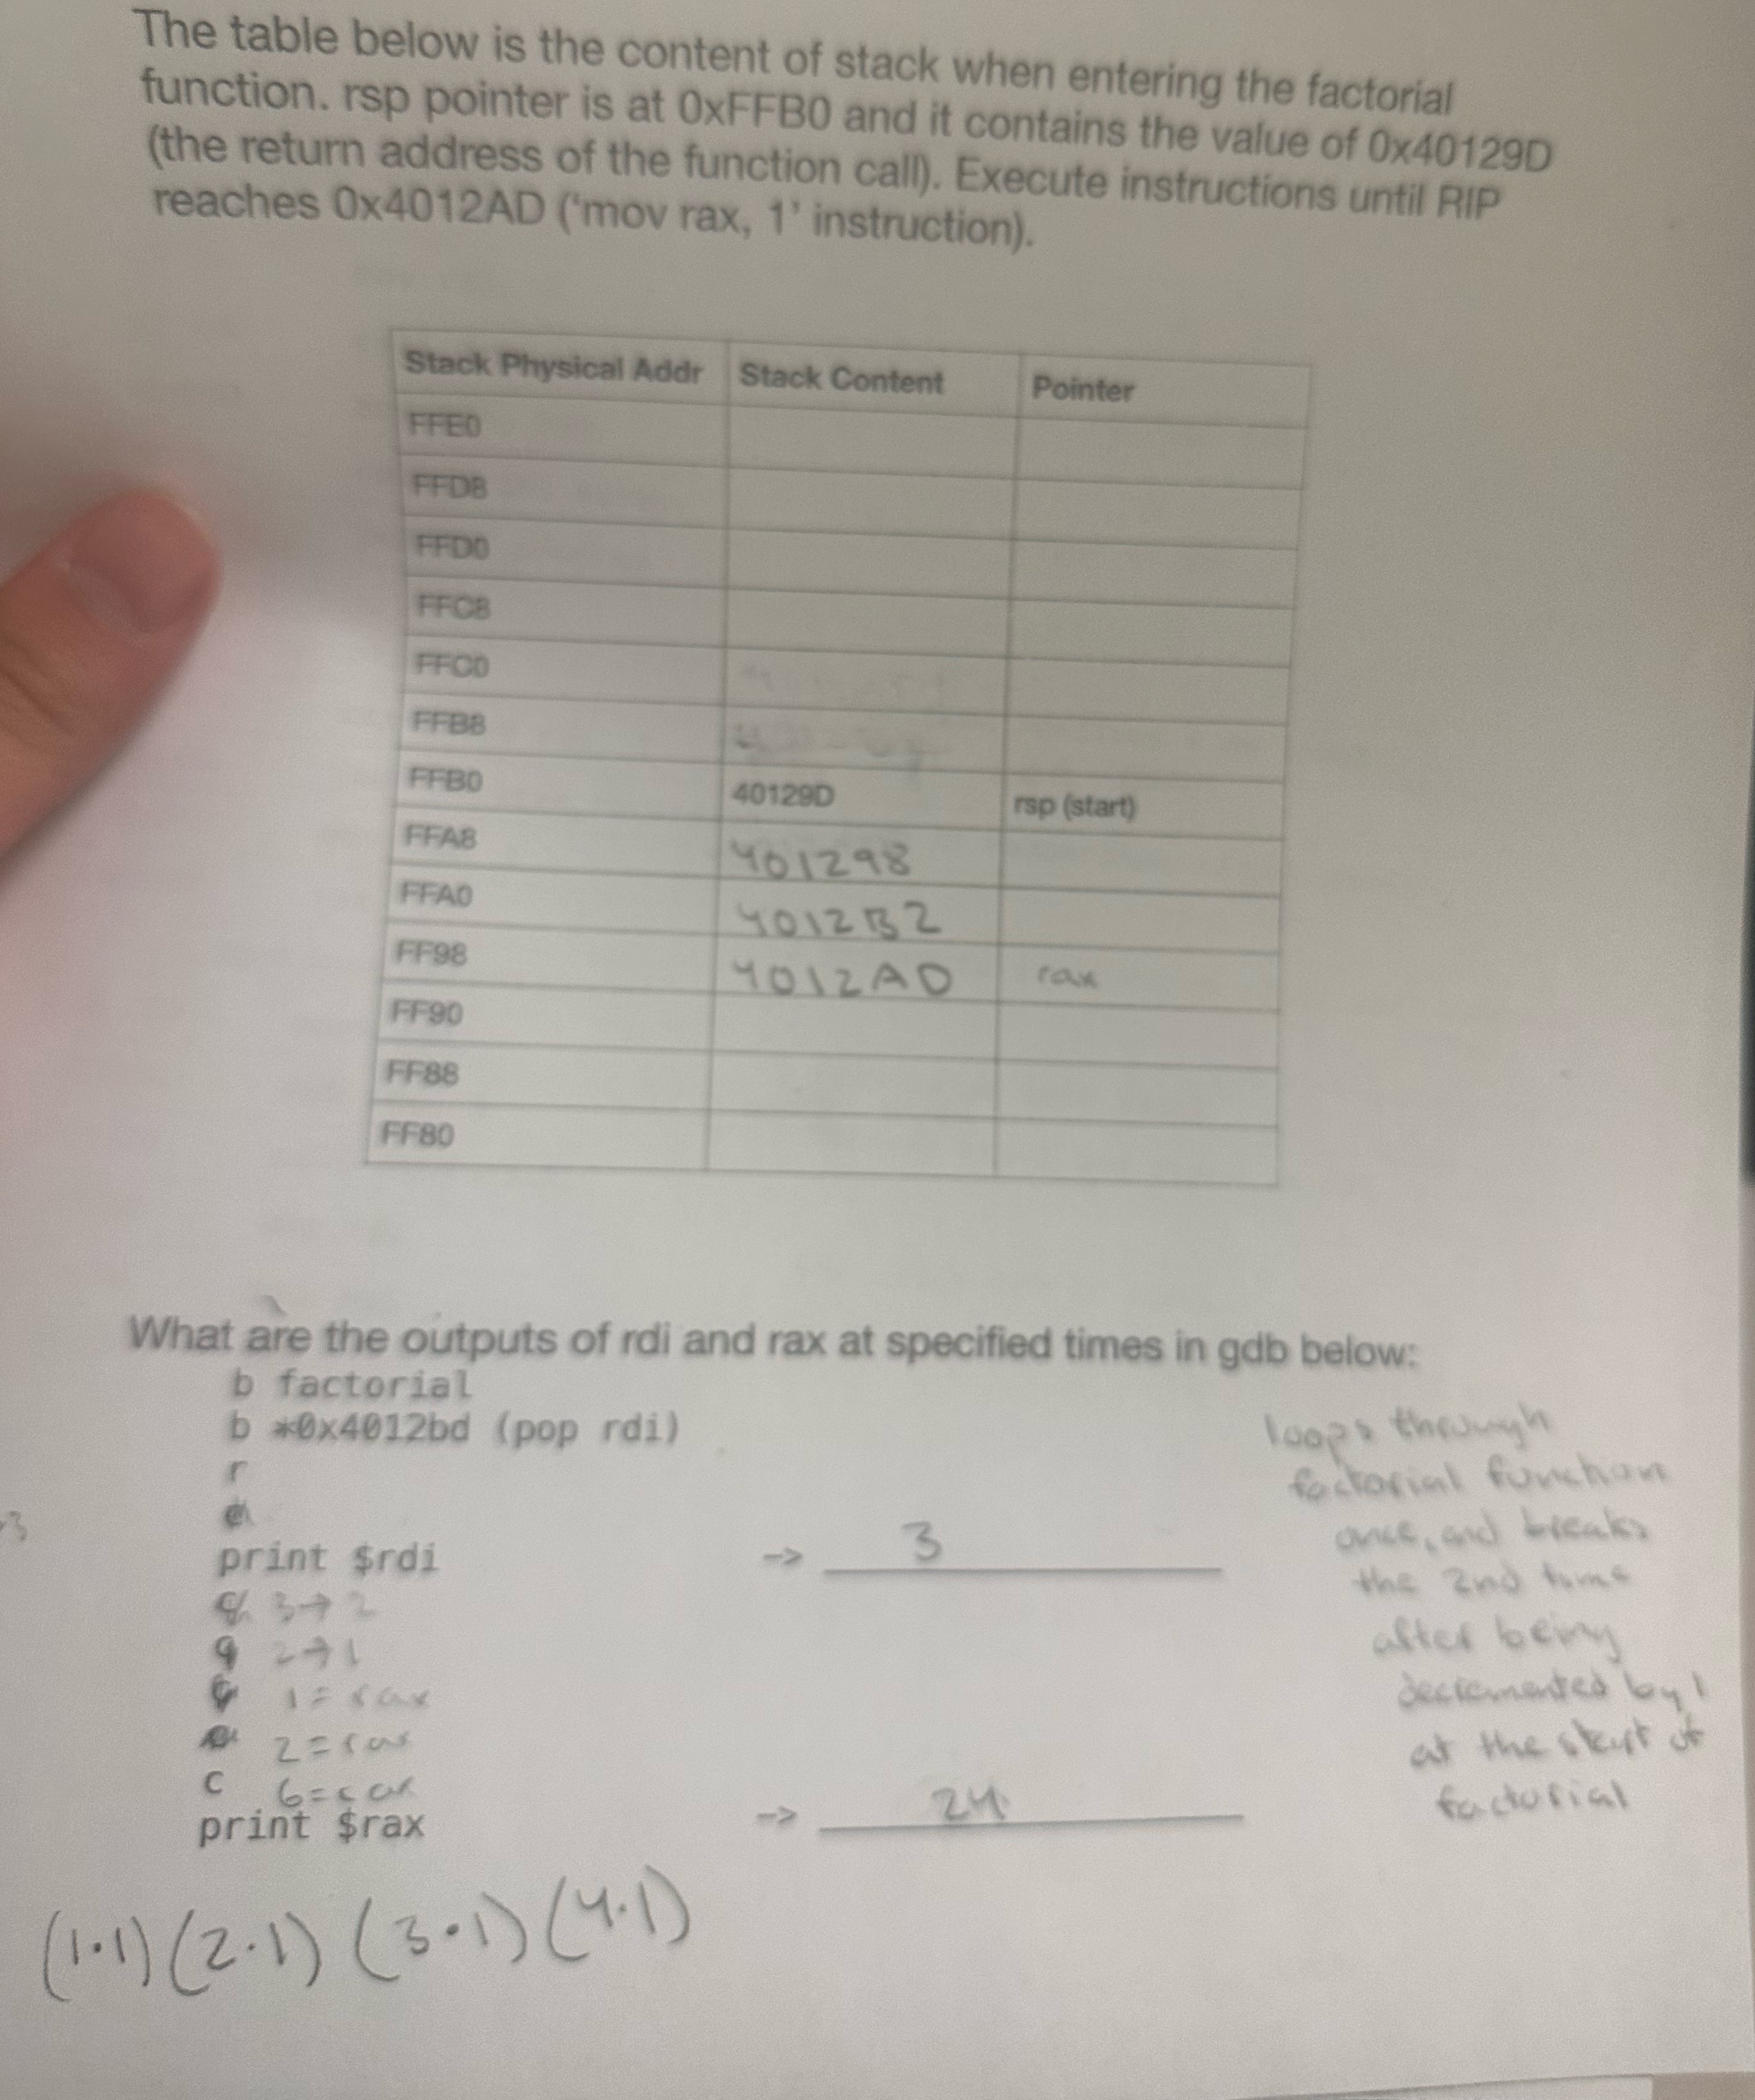 The table below is the content of stack when entering the factorial
function. rsp pointer is at 0xFFB0 and it contains the value of 0x40129D
(the return address of the function call). Execute instructions until RIP
reaches 0x4012AD ('mov rax, 1' instruction).
Stack Physical Addr Stack Content Pointer
FFE0
FFD8
FFD0
FFC8
FFC0
FFB8
FFB0 40129D rsp (start)
FFA8 401298
FFA0 4012B2
FF98 4012AD rax
FF90
FF88
FF80
What are the outputs of rdi and rax at specified times in gdb below:
b factorial
b *0x4012bd (pop rdi)
r
print $rdi -> 3
3→2
2→1
1=rax
2=rax
c 6=rax
print $rax -> 24
loops through
factorial function
once, and breaks
the 2nd time
after being
decremented by 1
at the start of
factorial
(1·1)(2·1)(3·1)(4·1)